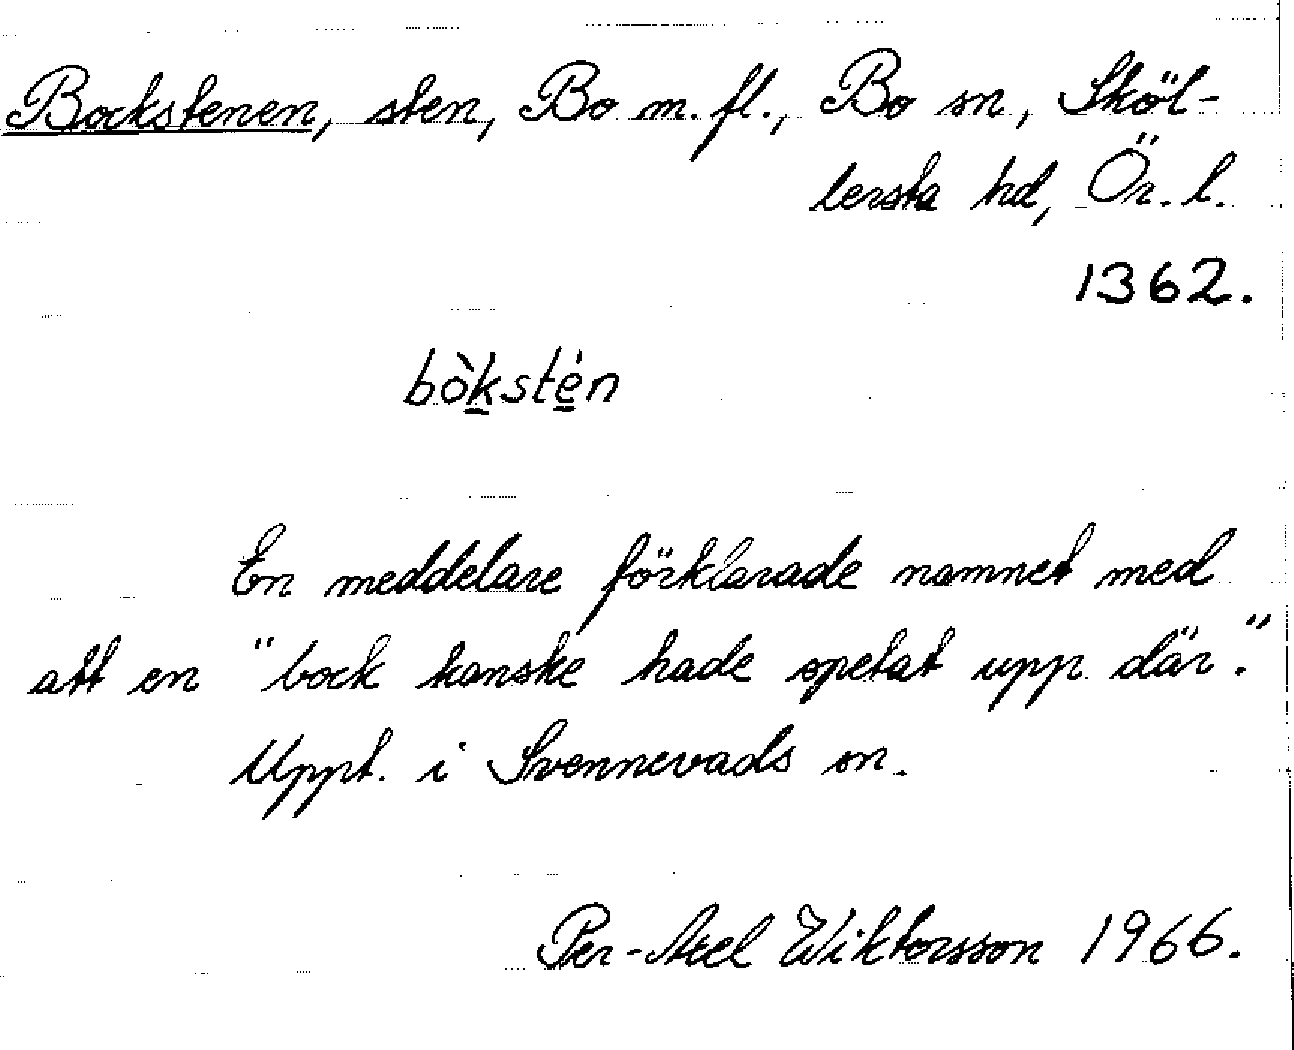 Bockstenen, sten, Bo m.fl., Bo sn, Sköl-
lersta hd, Ör. l.
1362.
bòksté̱n
En meddelare förklarade namnet med
att en "bock kanske hade spetat upp där."
Uppt. i Svennevads sn.
Per-Axel Wiktorsson 1966.